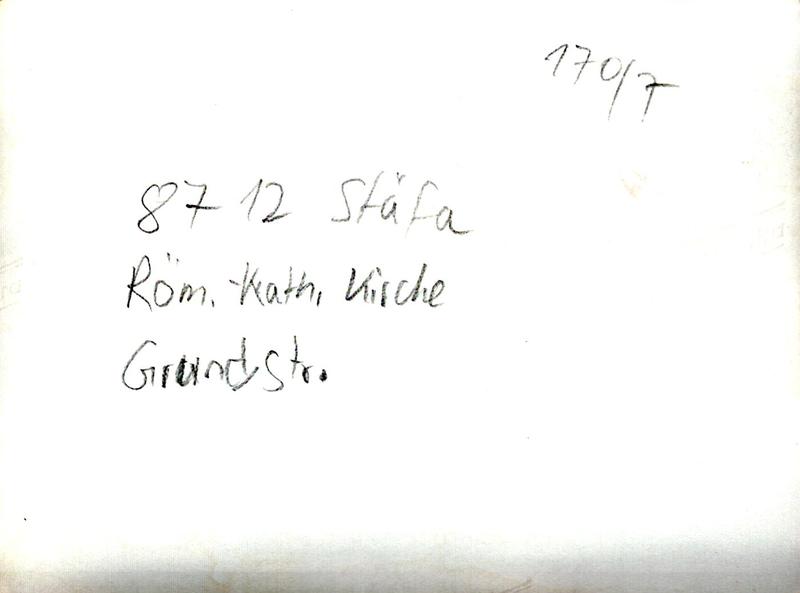 170/7
8712 Stäfa
Röm.-Kath. Kirche
Grundstr.